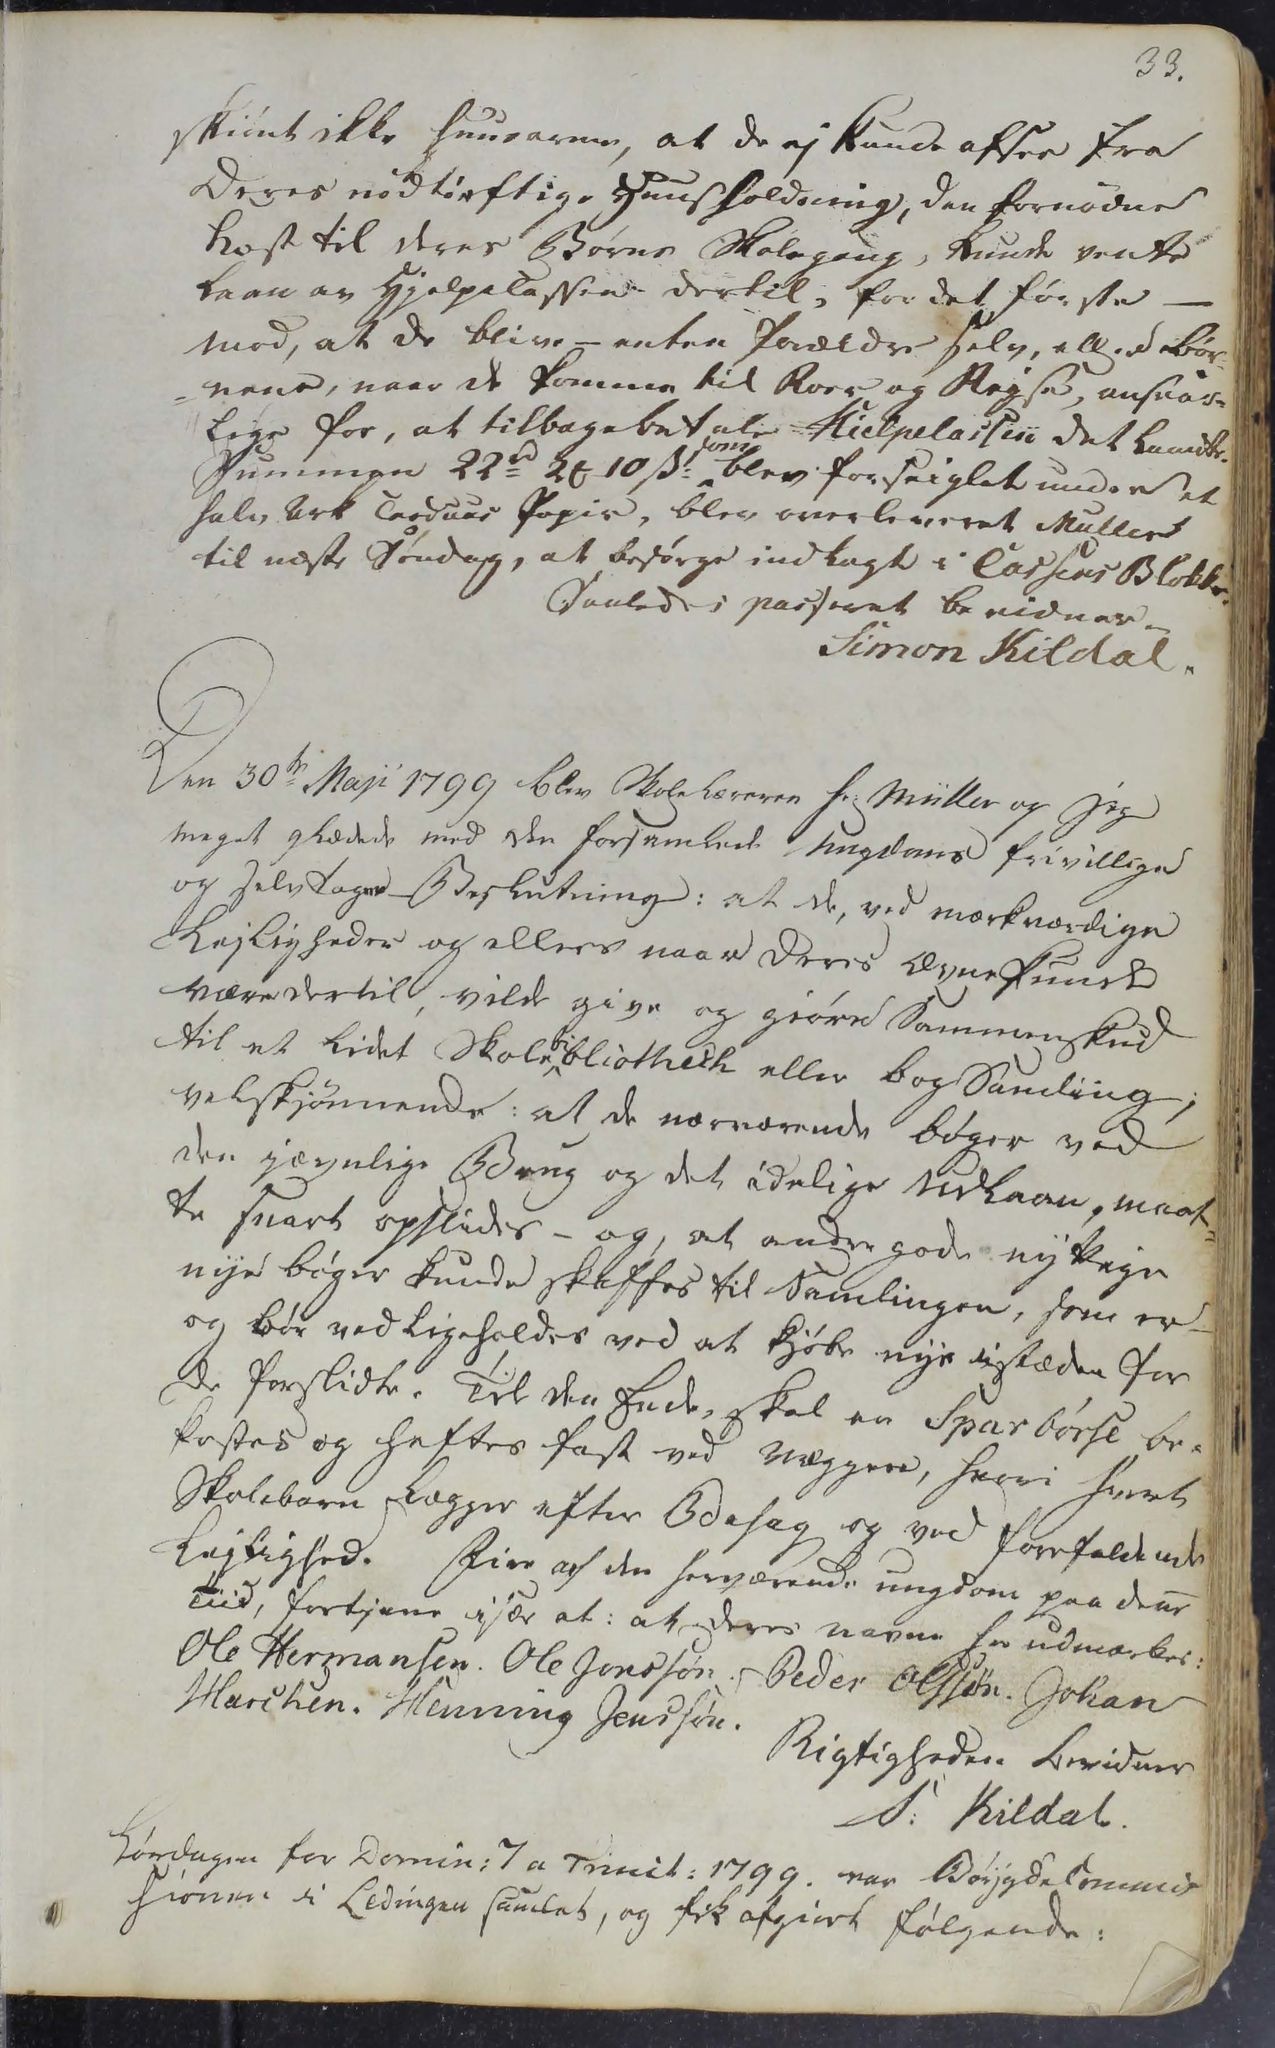 33.
skiönt ikke huusarme, at de ej kunde afsee fra
Deres nödtörftige Huusholdning, den fornödne
kost til deres Börns Skolegang, kunde vente
Laan av Hjelpecassen dertil, for det förste —
mod, at de blive – enten forældre selv, eller Bör-
nene, naar de komme til Roer og Rejse, ansvar-
lige for, at tilbagebetale Hielpecassen det Laante.
Summen 22 rd 2 ₰ 10 β: som blev forseiglet under et
halv Ark Carduus Papir, blev overleveret Müller
til næste Söndag, at besörge indlagt i Cassens Blokke.
Saaledes passeret bevidner
Simon Kildal.
Den 30te Maji 1799 blev Skolelæreren Hr. Müller og jeg
meget glædede med den forsamlede Ungdoms frivillige
og selvtagne Beslutning: at de, ved mærkværdige
Lejligheder og ellers naar deres Ævne kunde
være dertil, vilde give og giöre Sammenskud
til et lidet Skolebibliothech eller bog Samling;
velskjönnende: at de nærværende böger ved
den jævnlige Brug og det idelige Udlaan, maat-
te snart opslides – og, at andre gode nyttige
nye böger kunde skaffes til Samlingen, som er
og bör vedligeholdes ved at kjöbe nye istæden for
de forslidte. Til den Ende, skal en Sparbörse be-
kostes og heftes fast ved Væggen, hvori hvert
Skolebarn Lægger efter Behag og ved forefaldende
Lejlighed. Fire af den herværende ungdom paa denne
Tiid, fortjene især at: at deres navne her udmærkes:
Ole Hermansen. Ole Jonssön. Peder Olssön. Johan
Marchen. Henning Jenssön.
Rigtigheden bevidner
S: Kildal.
Löverdagen for Domin: 7 a Trinit: 1799. var BöjgdeCommis
sionen i Lödingen samlet, og fik afgiort fölgende: